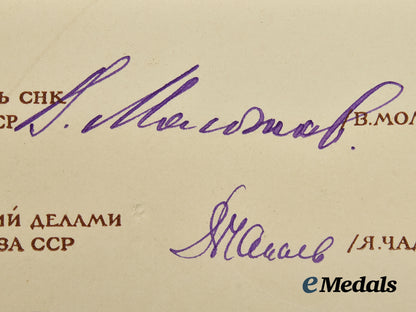 Ь СНК
СР В. Молотов. /В. МОЛ
ИЙ ДЕЛАМИ
ЗА ССР /Я. ЧАД
eMedals